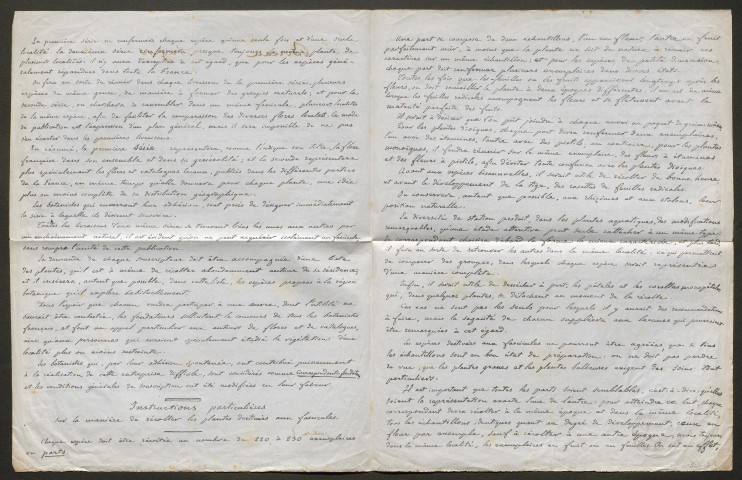 La première série ne renfermera chaque espèce qu'une seule fois et d'une seule
localité la deuxième série renfermera presque toujours la même plante, de
plusieurs localités; il n'y aura d'exception à cet égard, que pour les espèces géné-
ralement répandues dans toute la France.
On fera en sorte de réunir dans chaque livraison de la première série, plusieurs
espèces du même genre, de manière à former des groupes naturels, et pour la
seconde série, on cherchera à rassembler dans un même fascicule, plusieurs localités
de la même espèce, afin de faciliter la comparaison des diverses flores locales, le mode
de publication est l'expression d'un plan général, mais il sera impossible de ne pas
s'en écarter dans les premières livraisons.
En résumé, la première Série représentera, comme l'indique son titre, la flore
française dans son ensemble et dans sa généralité; et la seconde représentera
plus spécialement les flores et catalogues locaux, publiés dans les différentes parties
de la France, en même temps qu'elle donnera pour chaque plante, une idée
plus ou moins complète de sa distribution géographique.
Les botanistes qui enverront leur adhésion, sont priés de désigner immédiatement
la série à laquelle ils désirent souscrire.
Toutes les livraisons d'une même série se trouvant liées les unes aux autres par
un enchaînement naturel, il est évident qu'on ne peut acquérir isolément un fascicule
sans rompre l'unité de cette publication.
La demande de chaque souscripteur doit être accompagnée d'une liste
des plantes, qu'il est à même de récolter abondamment autour de sa résidence;
et il insérera, autant que possible, dans cette liste, les espèces propres à la région
botanique qu'il explore habituellement.
Dans l'espoir que chacun voudra participer à une œuvre, dont l'utilité ne
saurait être contestée, les fondateurs sollicitent le concours de tous les botanistes
français, et font un appel particulier aux auteurs de flores et de catalogues,
ainsi qu'aux personnes qui auraient spécialement étudié la végétation d'une
localité plus ou moins restreinte.
Les botanistes qui, par leur adhésion spontanée, ont contribué puissamment
à la réalisation de cette entreprise difficile, sont considérés comme Correspondants fondateurs
et les conditions générales de souscription ont été modifiées en leur faveur.
Instructions particulières
sur la manière de récolter les plantes destinées aux fascicules.
Chaque espèce doit être récoltée au nombre de 220 à 230 exemplaires
ou parts.
Une part se compose de deux échantillons, l'un en fleur, l'autre en fruit
parfaitement mûr, à moins que la plante ne soit de nature à réunir ces
caractères sur un même échantillon; et pour les espèces de petite dimension,
chaque part doit renfermer plusieurs exemplaires dans divers états.
Toutes les fois que les feuilles ou les fruits apparaissent longtemps après les
fleurs, on doit recueillir la plante à deux époques différentes, il en est de même
lorsque les feuilles radicales accompagnent les fleurs et se flétrissent avant la
maturité parfaite des fruits.
Il serait à désirer que l'on pût joindre à chaque envoi un paquet de graines mûres.
Pour les plantes dioïques, chaque part devra renfermer deux exemplaires,
l'un avec des étamines, l'autre avec des pistils, au contraire, pour les plantes
monoïques, il faudra réunir sur le même exemplaire, des fleurs à étamines
et des fleurs à pistils, afin d'éviter toute confusion avec les plantes dioïques.
Quant aux espèces bisannuelles, il serait utile de récolter de bonne heure
et avant le développement de la tige, des rosettes de feuilles radicales.
On conservera, autant que possible, aux rhizomes et aux stolons, leur
position naturelle.
La diversité de station produit, dans les plantes aquatiques, des modifications
remarquables, qu'une étude attentive peut seule rattacher à un même type.
Le correspondant cherchera d'abord la forme la mieux caractérisée, et, plus tard,
il fera en sorte de retrouver les autres dans la même localité, ce qui permettrait
de composer des groupes, dans lesquels chaque espèce serait représentée
d'une manière complète.
Enfin, il serait utile de dessécher à part, les pétales et les corolles monopétales
qui, dans quelques plantes, se détachent au moment de la récolte.
Ces cas ne sont pas les seuls pour lesquels il y aurait des recommandations
à faire, mais la sagacité de chacun suppléera aux lacunes qui pourraient
être remarquées à cet égard.
Les espèces destinées aux fascicules ne pourront être agréées que si tous
les échantillons sont en bon état de préparation, on ne doit pas perdre
en vue, que les plantes grasses et les plantes bulbeuses exigent des soins tout
particuliers.
Il est important que toutes les parts soient semblables, c'est-à-dire, qu'elles
soient la représentation exacte l'une de l'autre. pour atteindre ce but, chaque
correspondant devra récolter à la même époque et dans la même localité,
tous les échantillons identiques quant au degré de développement, ceux en
fleur par exemple, sauf à récolter à une autre époque, mais toujours
dans la même localité, les exemplaires en fruit ou en feuilles. On sait en effet,